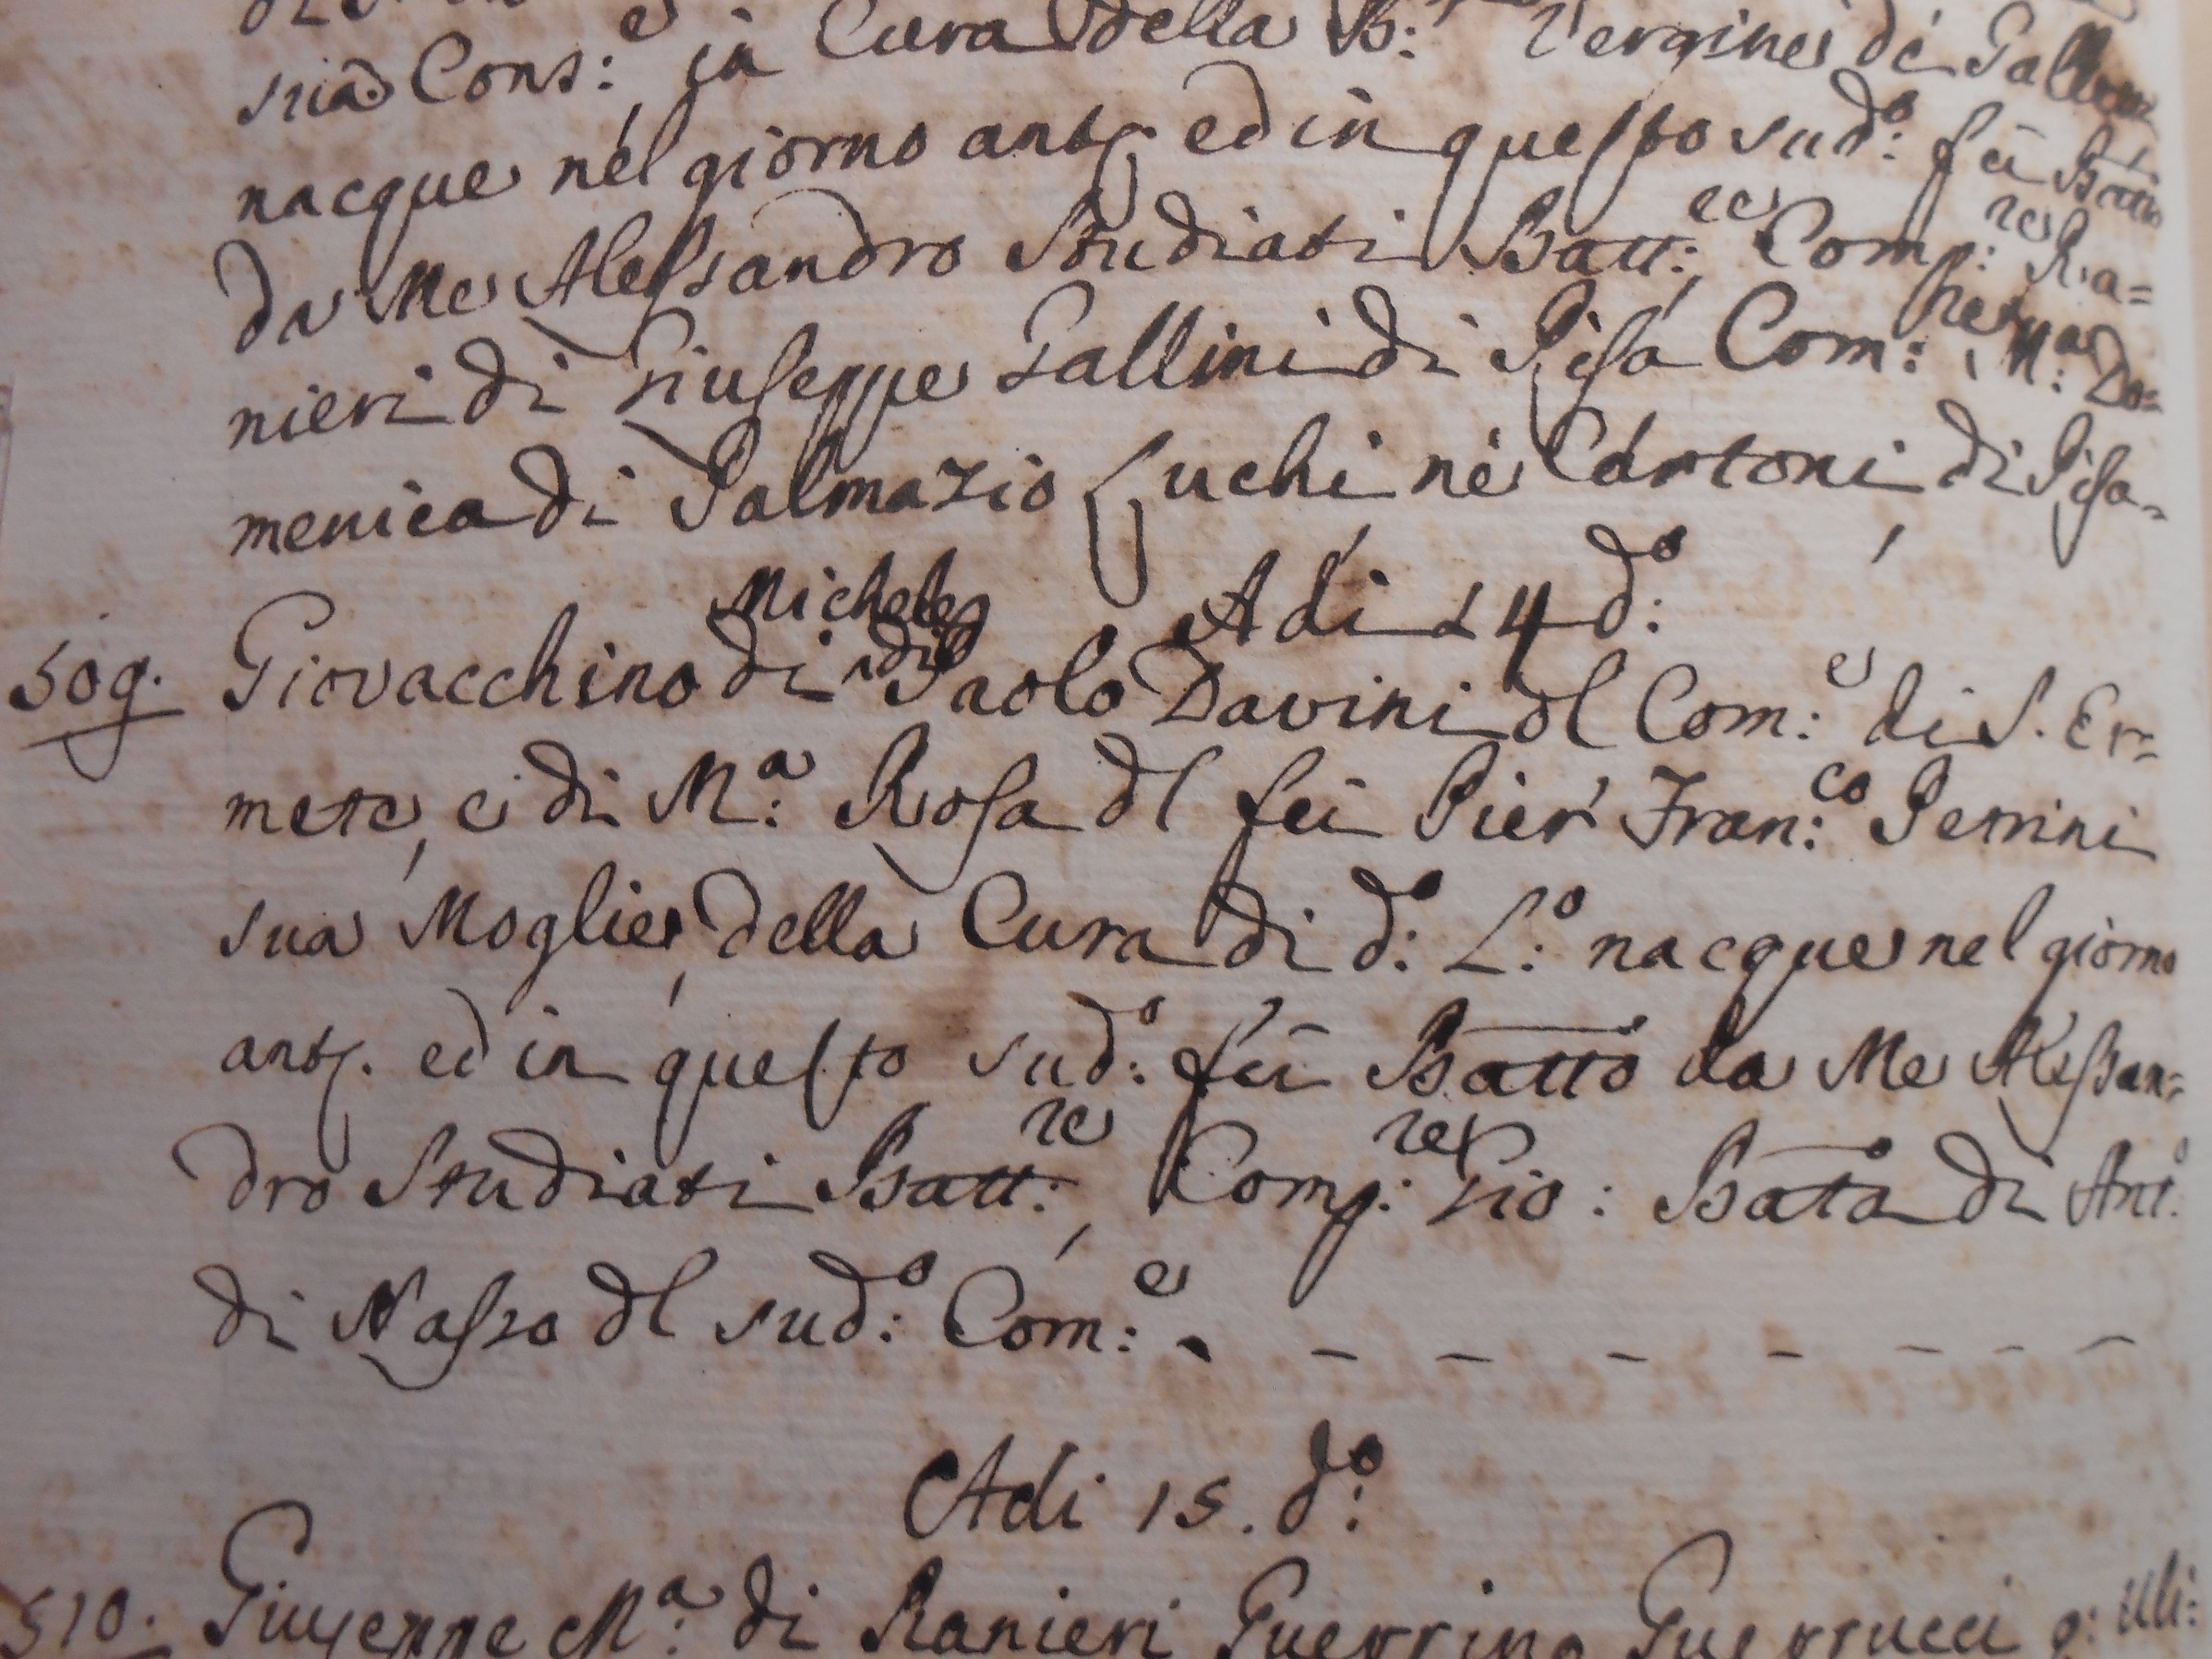 sua Cons:e in Cura della B: Vergine di
nacque nel giorno antte. ed in questo sud:o fù Batto
da Me Alessandro Studiati Batt:re, Comp:re Ra=
nieri di Giuseppe Gallini di Pisa Com: M:a Do=
menica di Palmazio Luchi nè Cartoni di Pisa-
Adi 14 d:o
Michele
509. Giovacchino di di Paolo Davini dl Com:e di S. Er=
mete, e di M:a Rosa dl fù Pier Fran:co Perrini
sua Moglie, della Cura di d:o L:o nacque nel giorno
antte. ed in questo sud:o fù Batto da Me Alessan=
dro Studiati Batt:re, Comp:re Gio: Bata di Ant:o
di Nasso dl sud:o Com:e - - - - - - - -
Adi 15. d:o
510. Giuseppe M:a di Ranieri Guerrino Guerrucci q: Uli: